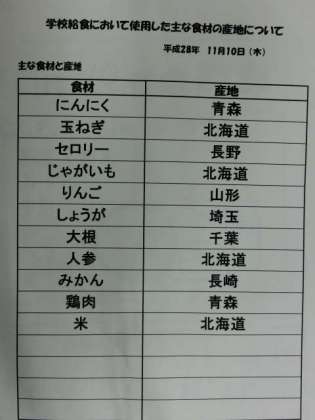 学校給食において使用した主な食材の産地について
平成28年 11月10日(木)
主な食材と産地
食材 産地
にんにく 青森
玉ねぎ 北海道
セロリー 長野
じゃがいも 北海道
りんご 山形
しょうが 埼玉
大根 千葉
人参 北海道
みかん 長崎
鶏肉 青森
米 北海道